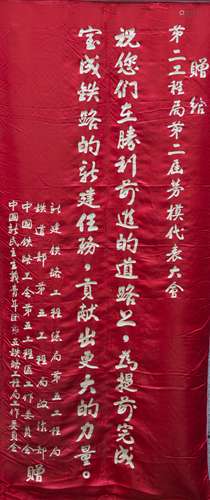 赠给
第二工程局第二届劳模代表大会
祝您们在胜利前进的道路上，为提前完成
宝成铁路的新建任务，贡献出更大的力量。
新建铁路工程总局第五工程局
铁道部第五工程局政治部
中国铁路工会第五工程区工作委员会
中国新民主主义青年团第五铁路工程局工作委员会
赠